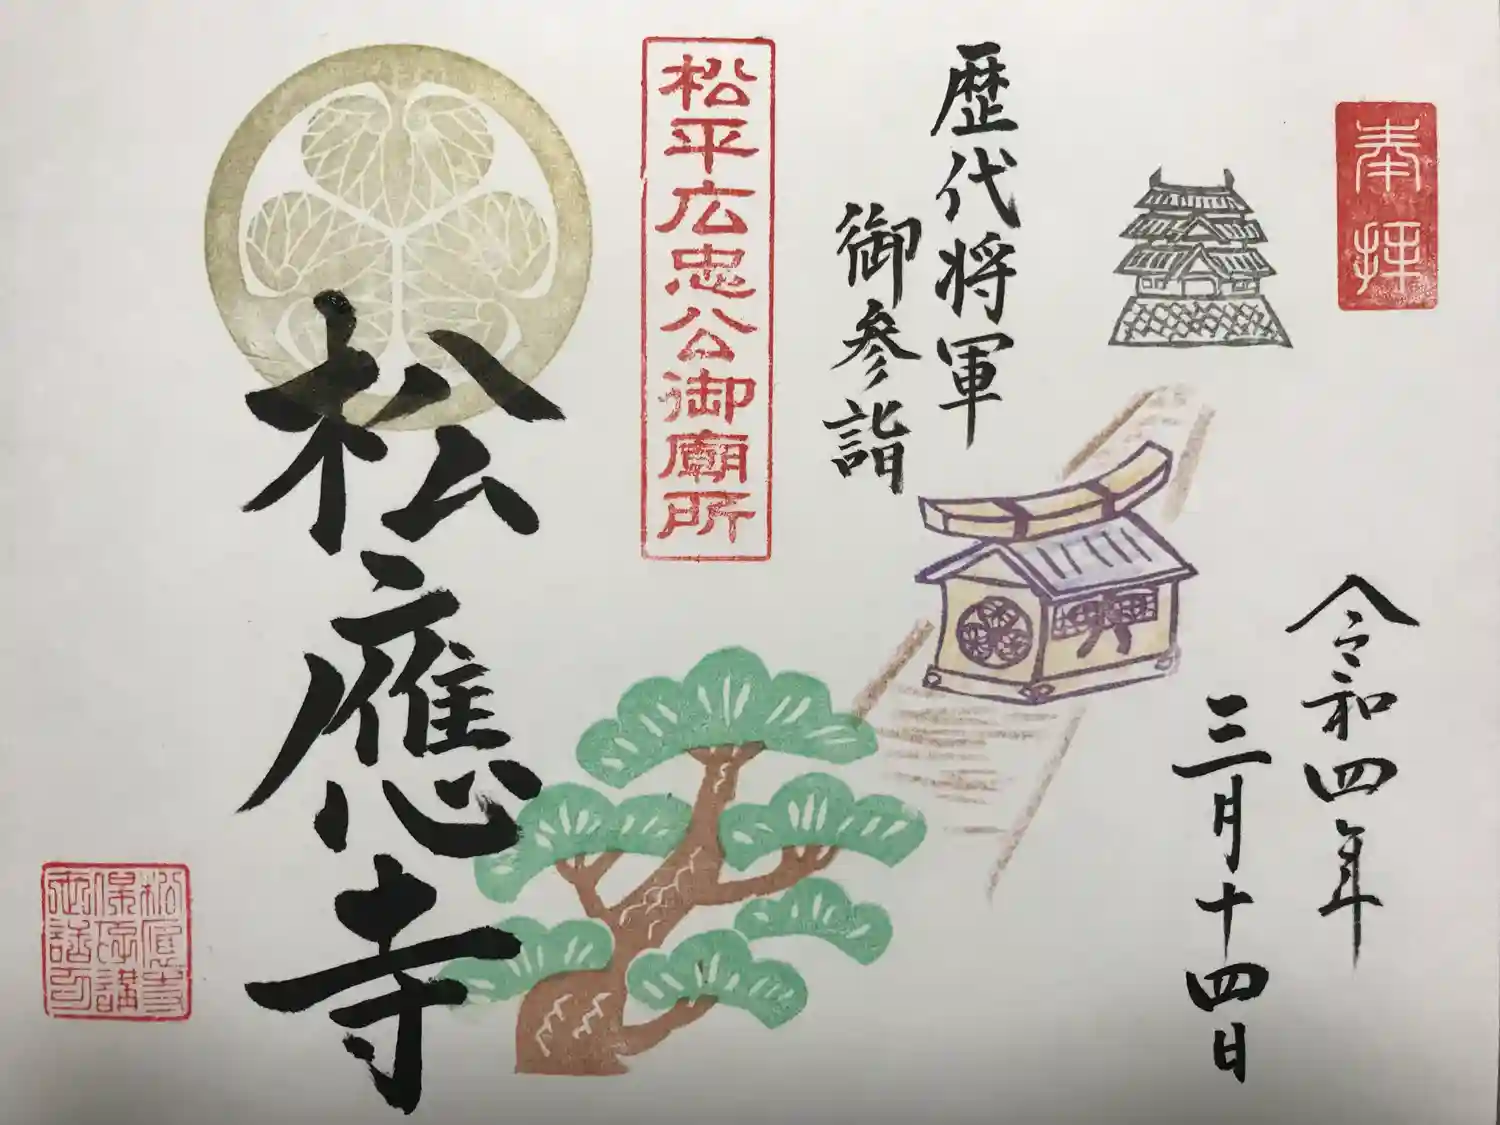 奉拝
令和四年
三月十四日
歴代将軍
御参詣
松平広忠公御廟所
松應寺
松應寺
保存講
世話方